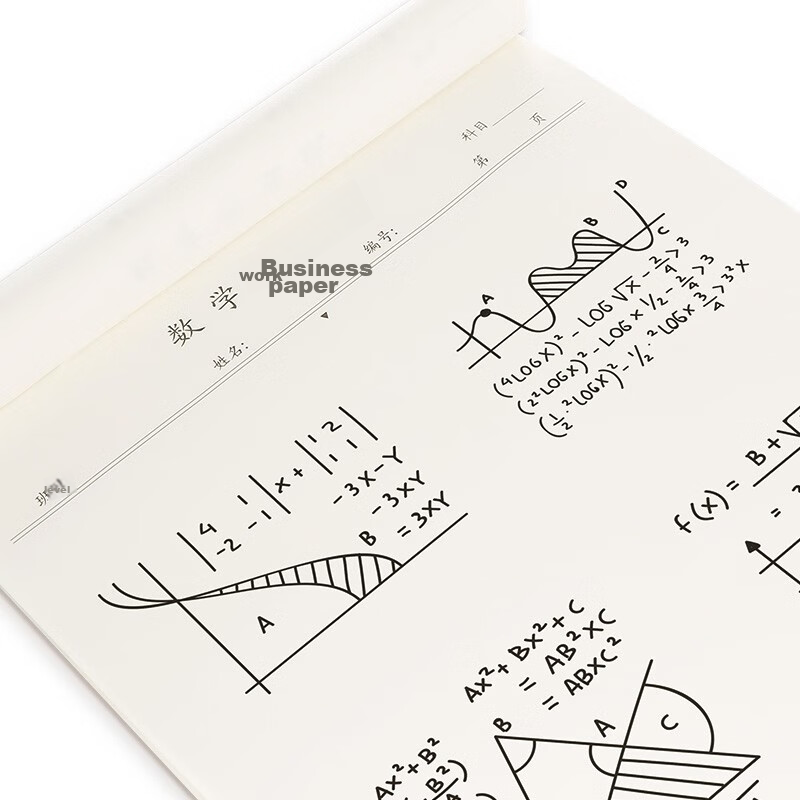 科目
第 页
编号:
Business
work
paper
数学
姓名:
班级
level
D
B
C
A
(4LOGX)² - LOG√X - 2/4 > 3
(2²LOGX)² - LOG X 1/2 - 2/4 > 3
(1/2 · ²LOGX)² - 1/2 · ²LOGX 3/4 > 3²X
|4 1| X + |1 2|
|-2 -1| |1 1|
-3X-Y
-3XY
= 3XY
B
A
B+√
f(x) =
=
AX² + BX² + C
= AB²XC
= ABXC²
B
A
C
AX² + B²